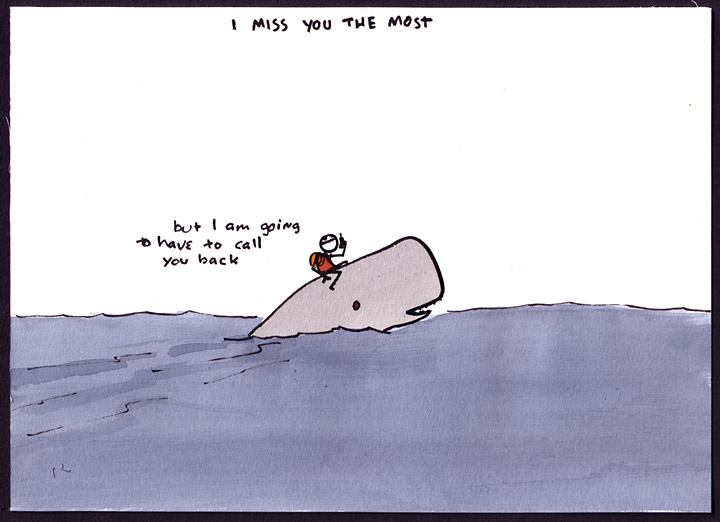 I MISS YOU THE MOST
but I am going
to have to call
you back